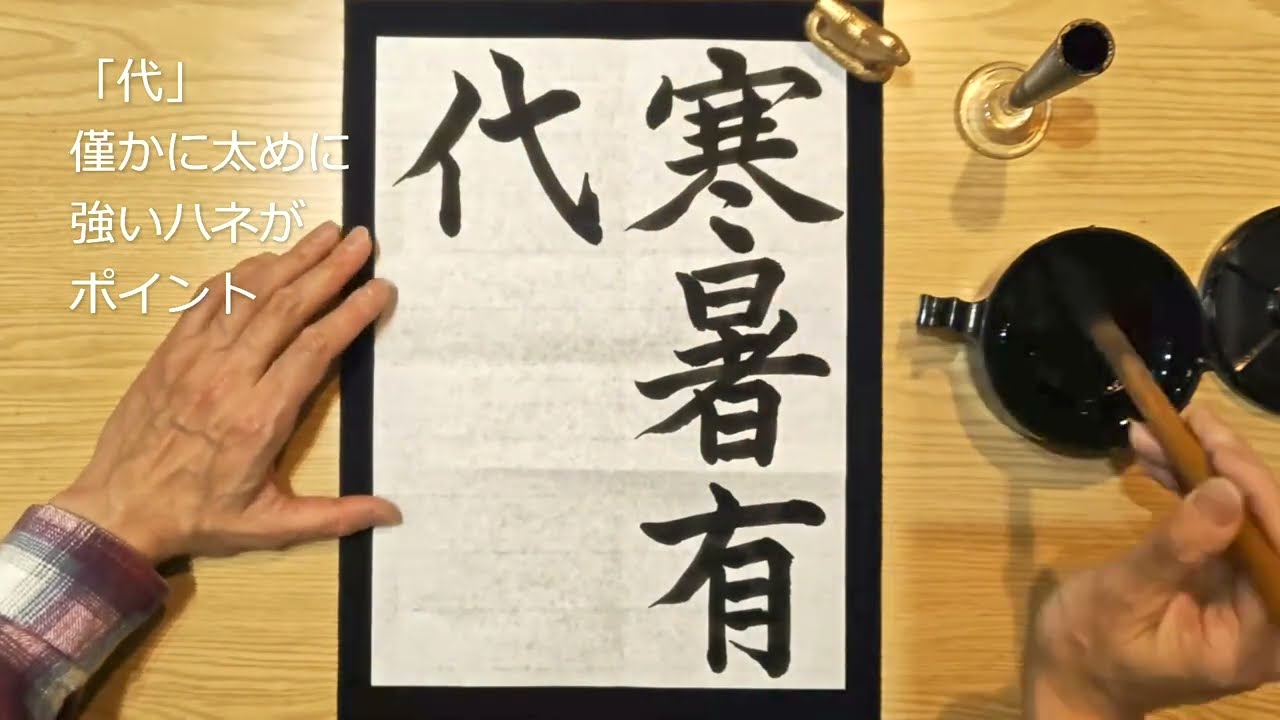 「代」
僅かに太めに
強いハネが
ポイント
寒暑有
代